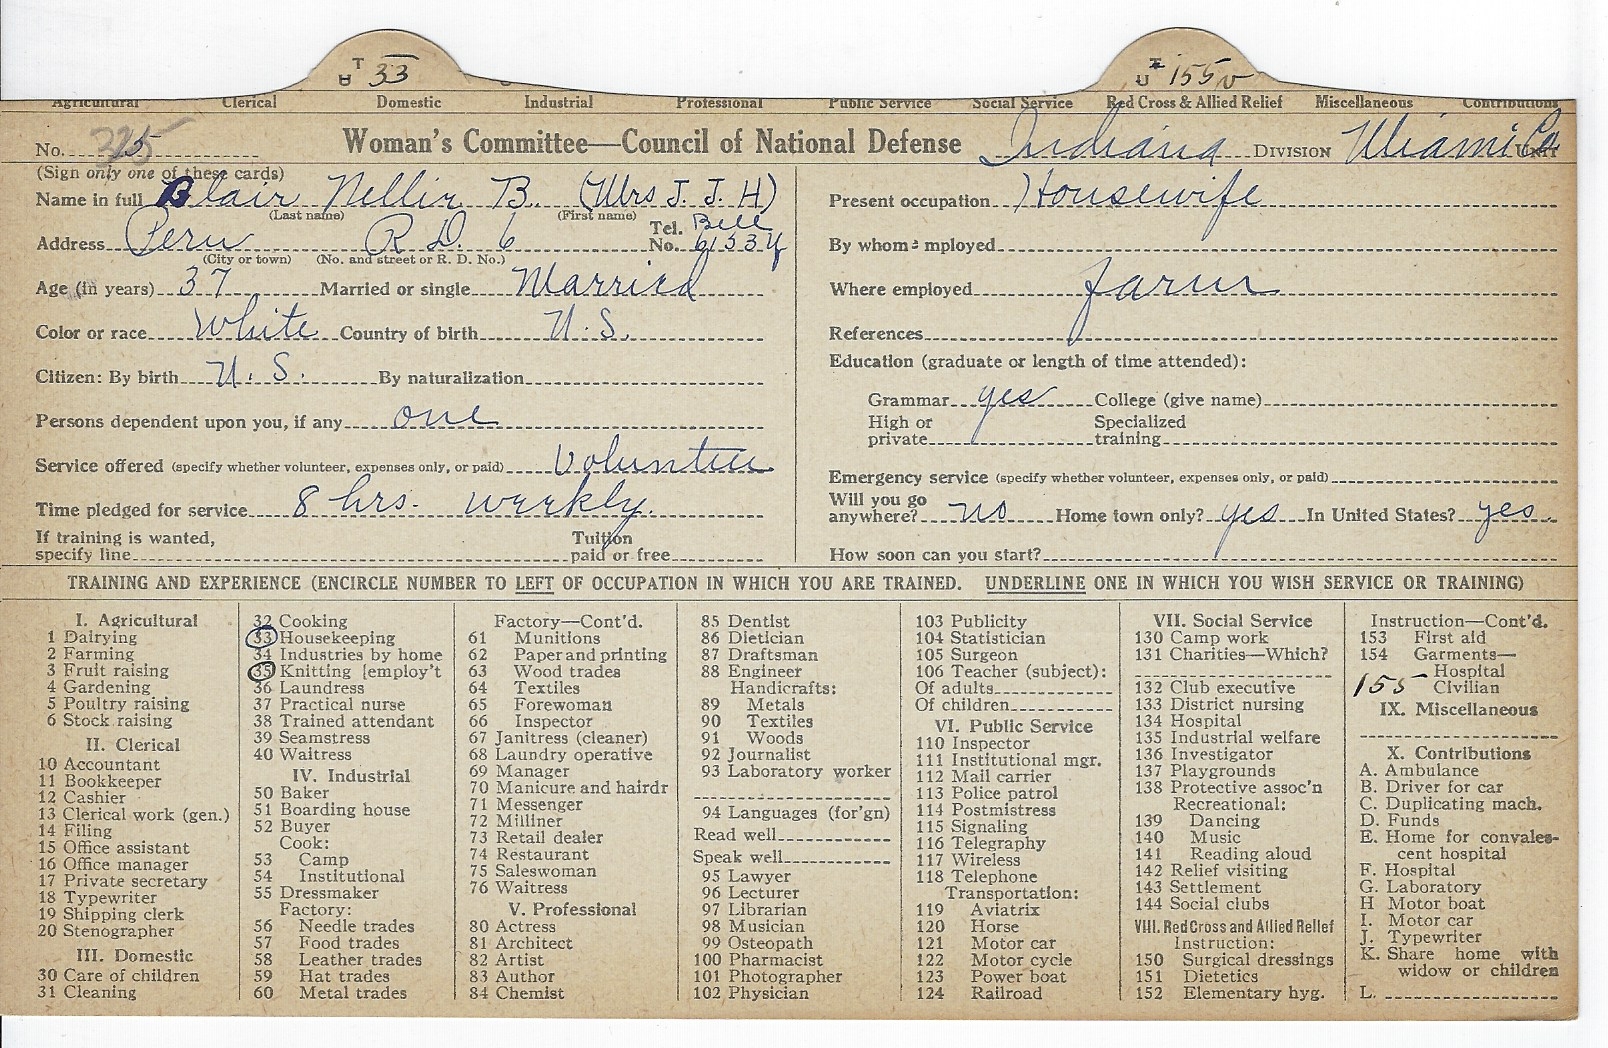 T
U 33
T
U 155v
Agricultural Clerical Domestic Industrial Professional Public Service Social Service Red Cross & Allied Relief Miscellaneous Contributions
No. 325 Woman's Committee—Council of National Defense Indiana DIVISION Miami Co UNIT
(Sign only one of these cards)
Name in full Blair Nellie B. (Mrs J. J. H)
(Last name) (First name)
Address Peru R D. 6 Tel. No. Bell 6153Y
(City or town) (No. and street or R. D. No.)
Age (in years) 37 Married or single Married
Color or race White Country of birth U.S.
Citizen: By birth U.S. By naturalization
Persons dependent upon you, if any one
Service offered (specify whether volunteer, expenses only, or paid) Volunteer
Time pledged for service 8 hrs. weekly.
If training is wanted, specify line Tuition paid or free
Present occupation Housewife
By whom employed
Where employed farm
References
Education (graduate or length of time attended):
Grammar yes College (give name)
High or private Specialized training
Emergency service (specify whether volunteer, expenses only, or paid)
Will you go anywhere? no Home town only? yes In United States? yes.
How soon can you start?
TRAINING AND EXPERIENCE (ENCIRCLE NUMBER TO LEFT OF OCCUPATION IN WHICH YOU ARE TRAINED. UNDERLINE ONE IN WHICH YOU WISH SERVICE OR TRAINING)
I. Agricultural
1 Dairying
2 Farming
3 Fruit raising
4 Gardening
5 Poultry raising
6 Stock raising
II. Clerical
10 Accountant
11 Bookkeeper
12 Cashier
13 Clerical work (gen.)
14 Filing
15 Office assistant
16 Office manager
17 Private secretary
18 Typewriter
19 Shipping clerk
20 Stenographer
III. Domestic
30 Care of children
31 Cleaning
32 Cooking
33 Housekeeping
34 Industries by home
35 Knitting [employ't
36 Laundress
37 Practical nurse
38 Trained attendant
39 Seamstress
40 Waitress
IV. Industrial
50 Baker
51 Boarding house
52 Buyer
Cook:
53 Camp
54 Institutional
55 Dressmaker
Factory:
56 Needle trades
57 Food trades
58 Leather trades
59 Hat trades
60 Metal trades
Factory—Cont'd.
61 Munitions
62 Paper and printing
63 Wood trades
64 Textiles
65 Forewoman
66 Inspector
67 Janitress (cleaner)
68 Laundry operative
69 Manager
70 Manicure and hairdr
71 Messenger
72 Milliner
73 Retail dealer
74 Restaurant
75 Saleswoman
76 Waitress
V. Professional
80 Actress
81 Architect
82 Artist
83 Author
84 Chemist
85 Dentist
86 Dietician
87 Draftsman
88 Engineer
Handicrafts:
89 Metals
90 Textiles
91 Woods
92 Journalist
93 Laboratory worker
94 Languages (for'gn)
Read well
Speak well
95 Lawyer
96 Lecturer
97 Librarian
98 Musician
99 Osteopath
100 Pharmacist
101 Photographer
102 Physician
103 Publicity
104 Statistician
105 Surgeon
106 Teacher (subject):
Of adults
Of children
VI. Public Service
110 Inspector
111 Institutional mgr.
112 Mail carrier
113 Police patrol
114 Postmistress
115 Signaling
116 Telegraphy
117 Wireless
118 Telephone
Transportation:
119 Aviatrix
120 Horse
121 Motor car
122 Motor cycle
123 Power boat
124 Railroad
VII. Social Service
130 Camp work
131 Charities—Which?
132 Club executive
133 District nursing
134 Hospital
135 Industrial welfare
136 Investigator
137 Playgrounds
138 Protective assoc'n
Recreational:
139 Dancing
140 Music
141 Reading aloud
142 Relief visiting
143 Settlement
144 Social clubs
VIII. Red Cross and Allied Relief
Instruction:
150 Surgical dressings
151 Dietetics
152 Elementary hyg.
Instruction—Cont'd.
153 First aid
154 Garments—
Hospital
155 Civilian
IX. Miscellaneous
X. Contributions
A. Ambulance
B. Driver for car
C. Duplicating mach.
D. Funds
E. Home for convales-
cent hospital
F. Hospital
G. Laboratory
H Motor boat
I. Motor car
J. Typewriter
K. Share home with
widow or children
L.